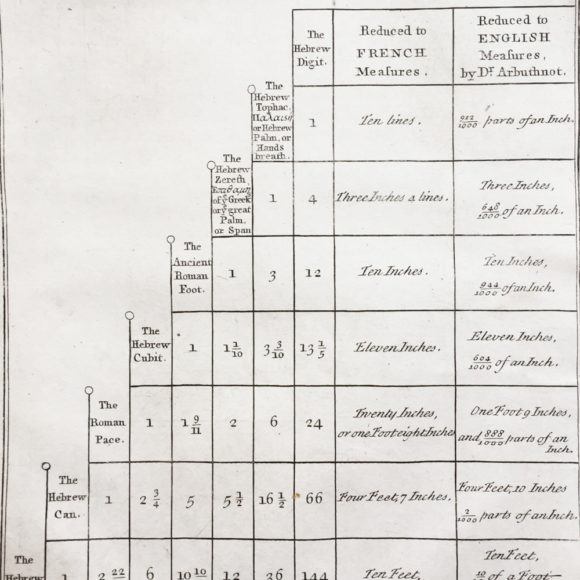 The Hebrew Digit.
Reduced to FRENCH Meaſures.
Reduced to ENGLISH Meaſures, by Dr. Arbuthnot.
The Hebrew Tophac. Παλαιςη or Hebrew Palm, or Hands breath.
1
Ten lines.
912/1000 parts of an Inch.
The Hebrew Zereth Σπιθαμη of ye Greek or ye great Palm. or Span
1
4
Three Inches 4 lines.
Three Inches, 648/1000 of an Inch.
The Ancient Roman Foot.
1
3
12
Ten Inches.
Ten Inches, 944/1000 of an Inch.
The Hebrew Cubit.
1
1 1/10
3 3/10
13 1/5
Eleven Inches.
Eleven Inches, 604/1000 of an Inch.
The Roman Pace.
1
1 9/11
2
6
24
Twenty Inches, or one Foot eight Inches
One Foot 9 Inches, and 888/1000 parts of an Inch.
The Hebrew Can.
1
2 3/4
5
5 1/2
16 1/2
66
Four Feet, 7 Inches.
Four Feet, 10 Inches 2/1000 parts of an Inch.
The Hebrew
1
2 22
6
10 10
12
36
144
Ten Feet,
Ten Feet, 10 of a Foot